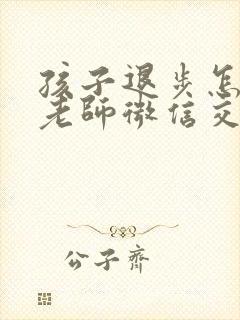 孩子退步怎
老师微信交
公子齐